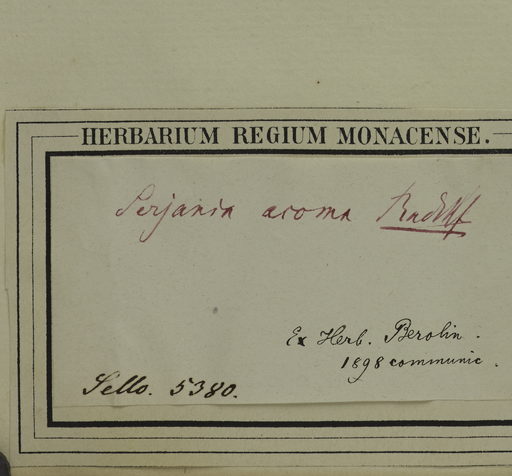 HERBARIUM REGIUM MONACENSE.
Serjania acoma Radlk
Ex Herb. Berolin.
1898 communic.
Sello. 5380.